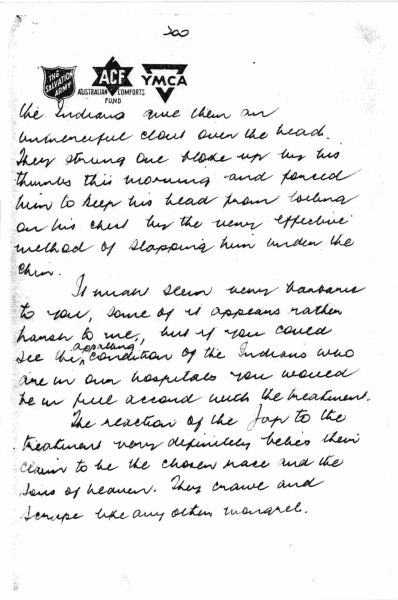 300
THE SALVATION ARMY
ACF
AUSTRALIAN COMFORTS FUND
YMCA
the Indians give them an
unmerciful clout over the head.
They strung one bloke up by his
thumbs this morning and forced
him to keep his head from lolling
on his chest by the very effective
method of slapping him under the
chin.
It must seem very barbaric
to you, some of it appears rather
harsh to me, but if you could
see the appalling condition of the Indians who
are in our hospitals you would
be in full accord with the treatment.
The reaction of the Jap to the
treatment very definitely belies their
claim to be the chosen race and the
sons of heaven. They crawl and
scrape like any other mongrel.